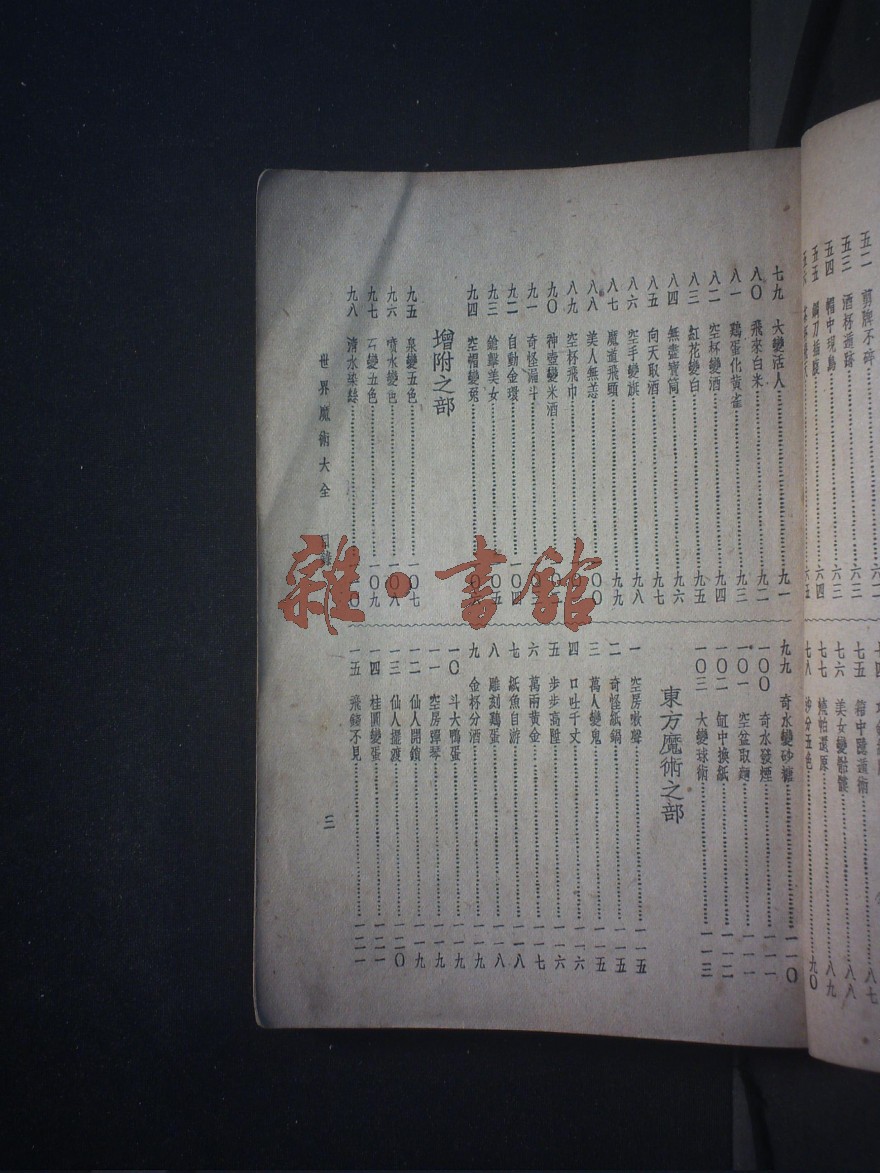 五二 剪牌不碎……六二
五三 酒杯遁跡……六三
五四 帽中現鳥……六三
五五 鋼刀插腹……六四
五六……六五
七四
七五 箱中隱遁術……八七
七六 美女變骷髏……八八
七七 燒帕還原……八九
七八 分五色……九〇
七九 大變活人……九一
八〇 飛來白米……九二
八一 鷄蛋化黄雀……九三
八二 空杯變酒……九四
八三 紅花變白……九五
八四 無盡寶筒……九六
八五 向天取酒……九七
八六 空手變旗……九八
八七 魔道飛頭……九九
八八 美人無恙……一〇〇
八九 空杯飛巾……
九〇 神壺變米酒……
九一 奇怪漏斗……
九二 自動金環……一〇四
九三 鎗擊美女……一〇五
九四 空帽變兔……
增附之部
九五 泉變五色……一〇七
九六 噴水變色……一〇八
九七 石變五色……一〇九
九八 清水染絲……
九九 奇水變砂糖……一一〇
一〇〇 奇水發煙……一一一
一〇一 空盆取麵……一一一
一〇二 缸中換紙……一一二
一〇三 大變球術……一一三
東方魔術之部
一 空房嗷聲……一一五
二 奇怪紙鍋……一一五
三 萬人變鬼……一一五
四 口吐千丈……一一六
五 步步高陞……一一六
六 萬兩黄金……一一七
七 紙魚自游……一一八
八 雕刻鷄蛋……一一八
九 金杯分酒……一一九
一〇 斗大鴨蛋……一一九
一一 空房彈琴……一一九
一二 仙人開鎖……一一九
一三 仙人擺渡……一二〇
一四 桂圓變蛋……一二一
一五 飛錢不見……一二一
世界魔術大全 目錄 三
雜·書館